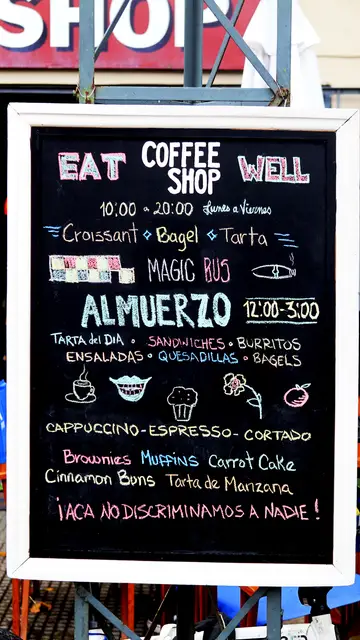 SHOP
EAT COFFEE SHOP WELL
10:00 a 20:00 Lunes a Viernes
Croissant Bagel Tarta
MAGIC BUS
ALMUERZO 12:00-3:00
TARTA del DIA • SANDWICHES • BURRITOS
ENSALADAS • QUESADILLAS • BAGELS
CAPPUCCINO-ESPRESSO-CORTADO
Brownies MUFFINS Carrot Cake
Cinnamon Buns Tarta de Manzana
¡ACA NO DISCRIMINAMOS A NADIE!